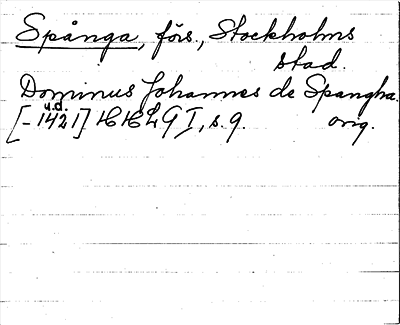 Spånga, förs., Stockholms
stad.
Dominus Johannes de Spangha.
u.d.
[-1421] HHLG I, s. 9. orig.